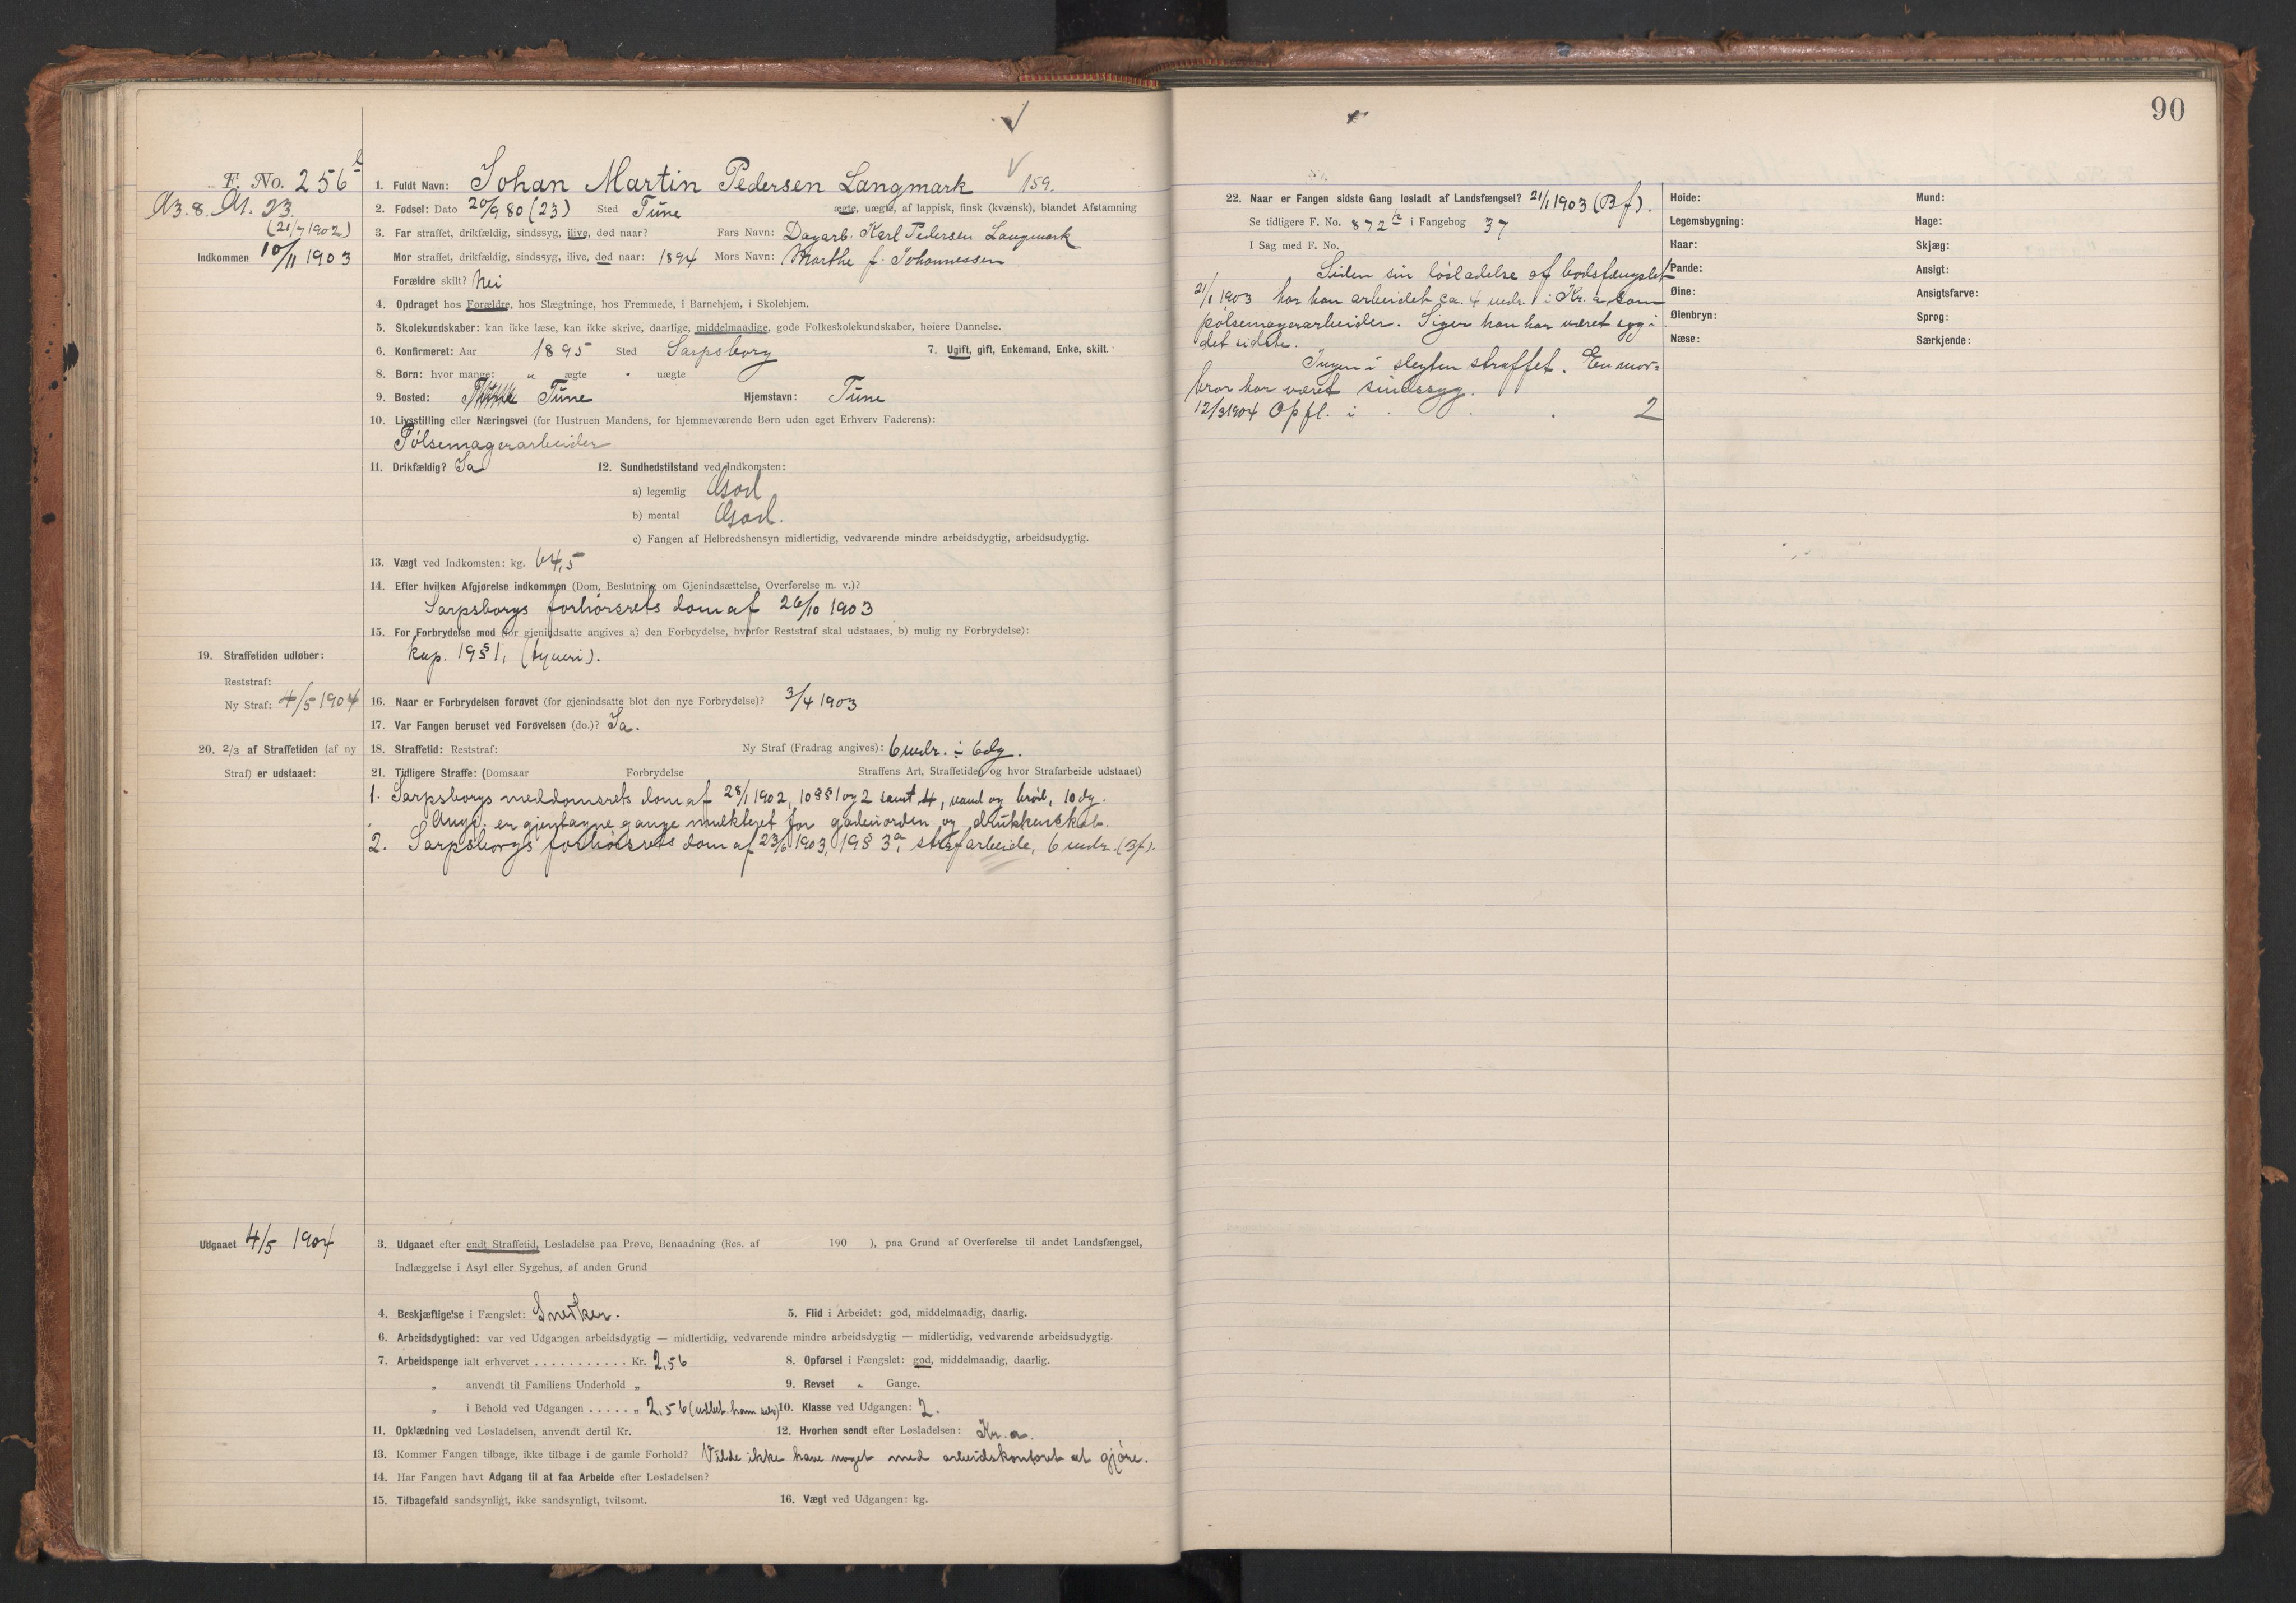 90
F. No. 256 b
A3. 8. A1. 23.
(21/7 1902)
Indkommen 10/11 1903
1. Fuldt Navn: Johan Martin Pedersen Langmark 159.
2. Fødsel: Dato 20/9 80 (23) Sted Tune ægte, uægte, af lappisk, finsk (kvænsk), blandet Afstamning
3. Far straffet, drikfældig, sindssyg, ilive, død naar? Fars Navn: Dagarb. Karl Pedersen Langmark
Mor straffet, drikfældig, sindssyg, ilive, død naar: 1894 Mors Navn: Marthe f. Johannessen
Forældre skilt? Nei
4. Opdraget hos Forældre, hos Slægtninge, hos Fremmede, i Barnehjem, i Skolehjem.
5. Skolekundskaber: kan ikke læse, kan ikke skrive, daarlige, middelmaadige, gode Folkeskolekundskaber, høiere Dannelse.
6. Konfirmeret: Aar 1895 Sted Sarpsborg 7. Ugift, gift, Enkemand, Enke, skilt.
8. Børn: hvor mange: " ægte " uægte
9. Bosted: Tune Hjemstavn: Tune
10. Livsstilling eller Næringsvei (for Hustruen Mandens, for hjemmeværende Børn uden eget Erhverv Faderens):
Pølsemagerarbeider
11. Drikfældig? Ja 12. Sundhedstilstand ved Indkomsten:
a) legemlig God
b) mental God.
c) Fangen af Helbredshensyn midlertidig, vedvarende mindre arbeidsdygtig, arbeidsudygtig.
13. Vægt ved Indkomsten: kg. 64,5
14. Efter hvilken Afgjørelse indkommen (Dom, Beslutning om Gjenindsættelse, Overførelse m. v.)?
Sarpsborgs forhørsrets dom af 26/10 1903
15. For Forbrydelse mod (for gjenindsatte angives a) den Forbrydelse, hvorfor Reststraf skal udstaaes, b) mulig ny Forbrydelse):
kap. 19 § 1, (tyveri).
19. Straffetiden udløber:
Reststraf:
Ny Straf: 4/5 1904
16. Naar er Forbrydelsen forøvet (for gjenindsatte blot den nye Forbrydelse)? 3/4 1903
17. Var Fangen beruset ved Forøvelsen (do.)? Ja.
20. 2/3 af Straffetiden (af ny
Straf) er udstaaet:
18. Straffetid: Reststraf: Ny Straf (Fradrag angives): 6 mdr. ÷ 6 dg.
21. Tidligere Straffe: (Domsaar Forbrydelse Straffens Art, Straffetiden og hvor Strafarbeide udstaaet)
1. Sarpsborgs meddomsrets dom af 28/1 1902, 10 §§ 1 og 2 samt 4, vand og brød, 10 dg.
Angj. er gjentagne gange mulkteret for gadeuorden og drukkenskab.
2. Sarpsborgs forhørsrets dom af 23/6 1903, 19 § 3 a, strafarbeide, 6 mdr. (Bf).
Udgaaet 4/5 1904
3. Udgaaet efter endt Straffetid, Løsladelse paa Prøve, Benaadning (Res. af 190 ), paa Grund af Overførelse til andet Landsfængsel,
Indlæggelse i Asyl eller Sygehus, af anden Grund
4. Beskjæftigelse i Fængslet: Snedker. 5. Flid i Arbeidet: god, middelmaadig, daarlig.
6. Arbeidsdygtighed: var ved Udgangen arbeidsdygtig — midlertidig, vedvarende mindre arbeidsdygtig — midlertidig, vedvarende arbeidsudygtig.
7. Arbeidspenge ialt erhvervet . . . . . . . . . . . Kr. 2,56 8. Opførsel i Fængslet: god, middelmaadig, daarlig.
" anvendt til Familiens Underhold " 9. Revset " Gange.
" i Behold ved Udgangen . . . . . " 2,56 (udbet. ham selv) 10. Klasse ved Udgangen: 2.
11. Opklædning ved Løsladelsen, anvendt dertil Kr. 12. Hvorhen sendt efter Løsladelsen: Kr. a.
13. Kommer Fangen tilbage, ikke tilbage i de gamle Forhold? Vilde ikke have noget med arbeidskontoret at gjøre.
14. Har Fangen havt Adgang til at faa Arbeide efter Løsladelsen?
15. Tilbagefald sandsynligt, ikke sandsynligt, tvilsomt. 16. Vægt ved Udgangen: kg.
22. Naar er Fangen sidste Gang løsladt af Landsfængsel? 21/1 1903 (Bf).
Se tidligere F. No. 872 b i Fangebog 37
I Sag med F. No.
Siden sin løsladelse af bodsfængslet
21/1 1903 har han arbeidet ca. 4 mdr. i Kr. a som
pølsemagerarbeider. Siger han har været syg i
det sidste.
Ingen i slegten straffet. En mor-
bror har været sindssyg.
12/3 1904 Opfl. i 2
Høide: Mund:
Legemsbygning: Hage:
Haar: Skjæg:
Pande: Ansigt:
Øine: Ansigtsfarve:
Øienbryn: Sprog:
Næse: Særkjende: